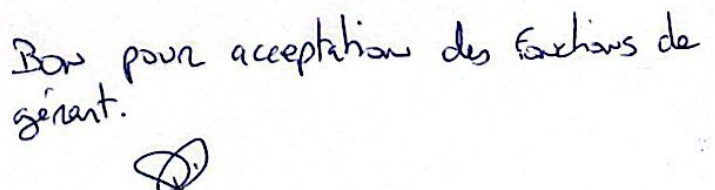 Bon pour acceptation des fonctions de
gérant.